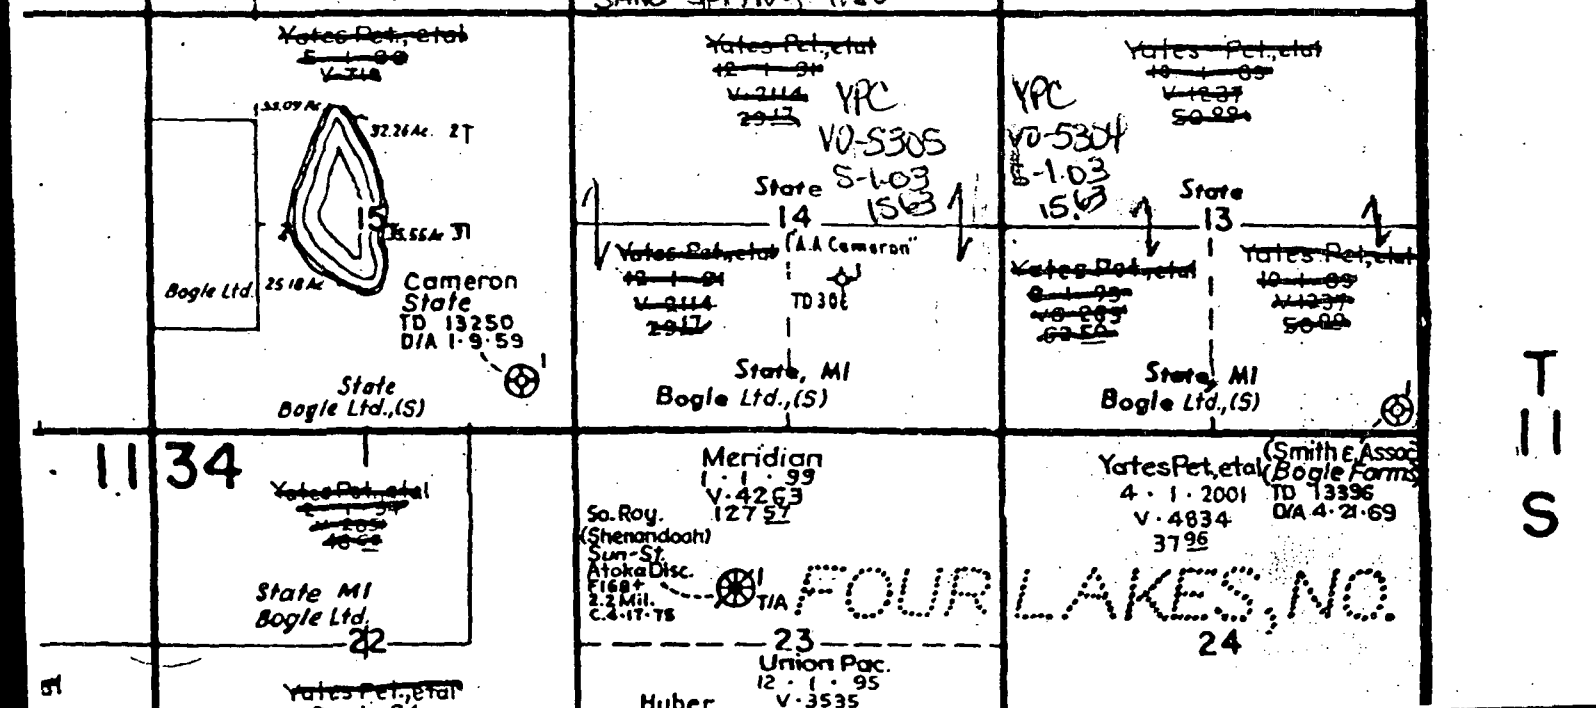 Yates Pet., etal
V-318
33.09 Ac
32.26 Ac. 2T
15
35.55 Ac 31
25.18 Ac
Bogle Ltd.
Cameron
State
TD 13250
D/A 1·9·59
1
State
Bogle Ltd.,(S)
Yates Pet., etal
12-1-91
V-2114
29 17
YPC
VO-5305
5-1-03
15 63
State
14
Yates Pet., etal
12-1-91
V-2114
29 17
"A.A Cameron"
1
State, MI
Bogle Ltd.,(S)
Yates Pet., etal
10-1-89
V-1237
50 89
YPC
VO-5304
5-1-03
15.63
State
13
Yates Pet., etal
Yates Pet., etal
10-1-89
V-1237
50 89
State, MI
Bogle Ltd.,(S)
1
T
11
S
11 34
Yates Pet., etal
State MI
Bogle Ltd.
22
Yates Pet., etal
Meridian
1·1·99
V·4263
127 57
So. Roy.
(Shenandoah)
Sun-St.
Atoka Disc.
F168+
2.2 Mil.
C.4·17·75
1
T/A
23
Union Pac.
12·1·95
V·3535
Huber
Yates Pet., etal
4·1·2001
V·4834
37 96
(Smith & Assoc
(Bogle Farms
TD 13396
D/A 4·21·69
FOUR LAKES, NO.
24